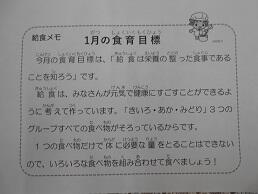 給食メモ
1月の食育目標
今月の食育目標は、「給食は栄養の整った食事である
ことを知ろう」です。
給食は、みなさんが元気で健康にすごすことができるよ
うに考えて作っています。「きいろ・あか・みどり」3つの
グループすべての食べ物がそろっているからです。
1つの食べ物だけで体に必要な量をとることはできない
ので、いろいろな食べ物を組み合わせて食べましょう！